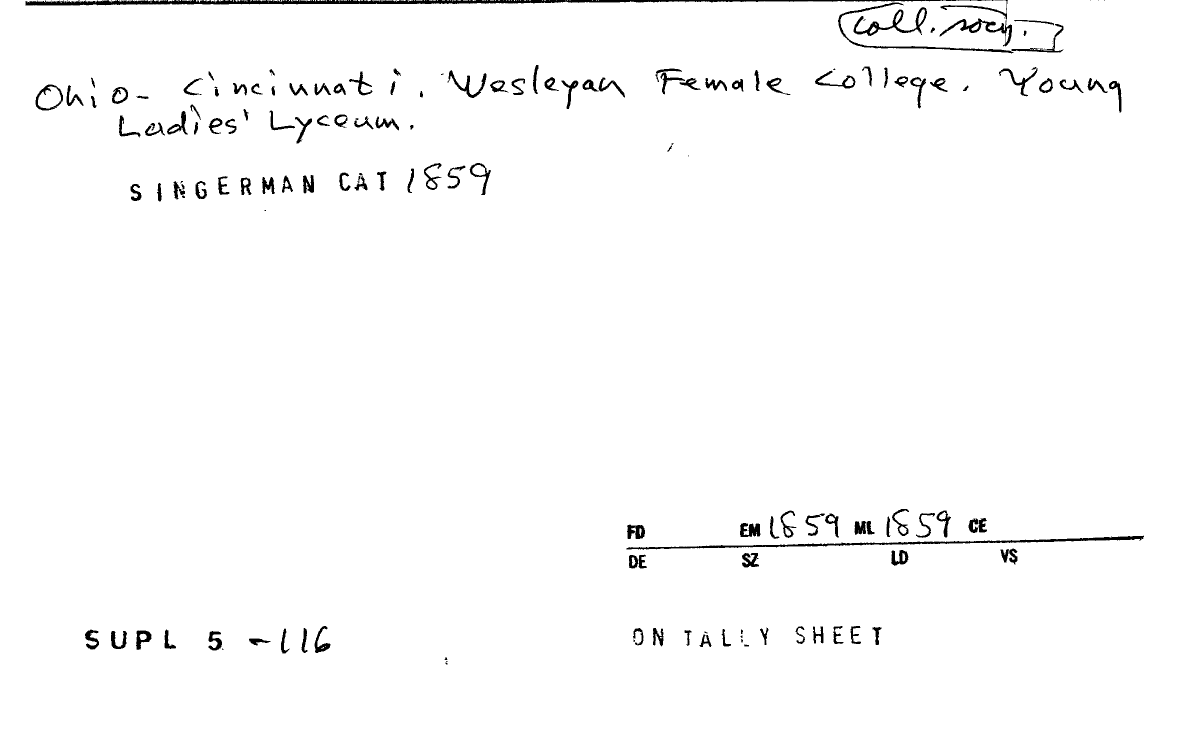 coll. socy.
Ohio- Cincinnati. Wesleyan Female College. Young
Ladies' Lyceum.
SINGERMAN CAT 1859
FD EM 1859 ML 1859 CE
DE SZ LD VS
SUPL 5 -116
ON TALLY SHEET